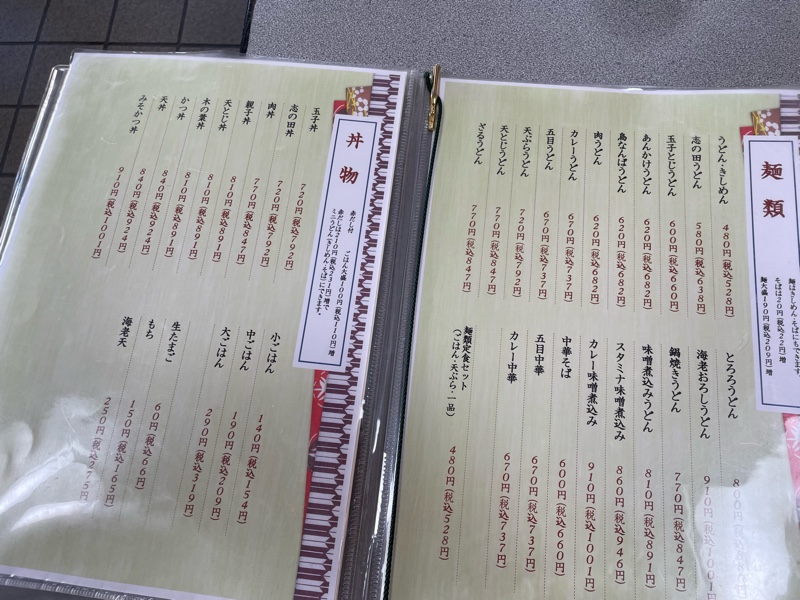 麺類
麺はきしめん・そばにもできます。
そばは20円(税込22円)増
麺大盛190円(税込209円)増
うどん・きしめん 480円(税込528円)
志の田うどん 580円(税込638円)
玉子とじうどん 600円(税込660円)
あんかけうどん 620円(税込682円)
鳥なんばうどん 620円(税込682円)
肉うどん 620円(税込682円)
カレーうどん 670円(税込737円)
五目うどん 670円(税込737円)
天ぷらうどん 720円(税込792円)
天とじうどん 770円(税込847円)
ざるうどん 770円(税込847円)
とろろうどん
海老おろしうどん 910円(税込1001円)
鍋焼きうどん 770円(税込847円)
味噌煮込みうどん 810円(税込891円)
スタミナ味噌煮込み 860円(税込946円)
カレー味噌煮込み 910円(税込1001円)
中華そば 600円(税込660円)
五目中華 670円(税込737円)
カレー中華 670円(税込737円)
麺類定食セット
(ごはん・天ぷら・一品) 480円(税込528円)
丼物
赤だし付 ごはん大盛100円(税込110円)増
赤だしは210円(税込231円)増で
ミニうどん(きしめん・そば)にできます。
玉子丼 720円(税込792円)
志の田丼 720円(税込792円)
肉丼 770円(税込847円)
親子丼 810円(税込891円)
天とじ丼 810円(税込891円)
木の葉丼 810円(税込891円)
かつ丼 840円(税込924円)
天丼 840円(税込924円)
みそかつ丼 910円(税込1001円)
小ごはん 140円(税込154円)
中ごはん 190円(税込209円)
大ごはん 290円(税込319円)
生たまご 60円(税込66円)
もち 150円(税込165円)
海老天 250円(税込275円)